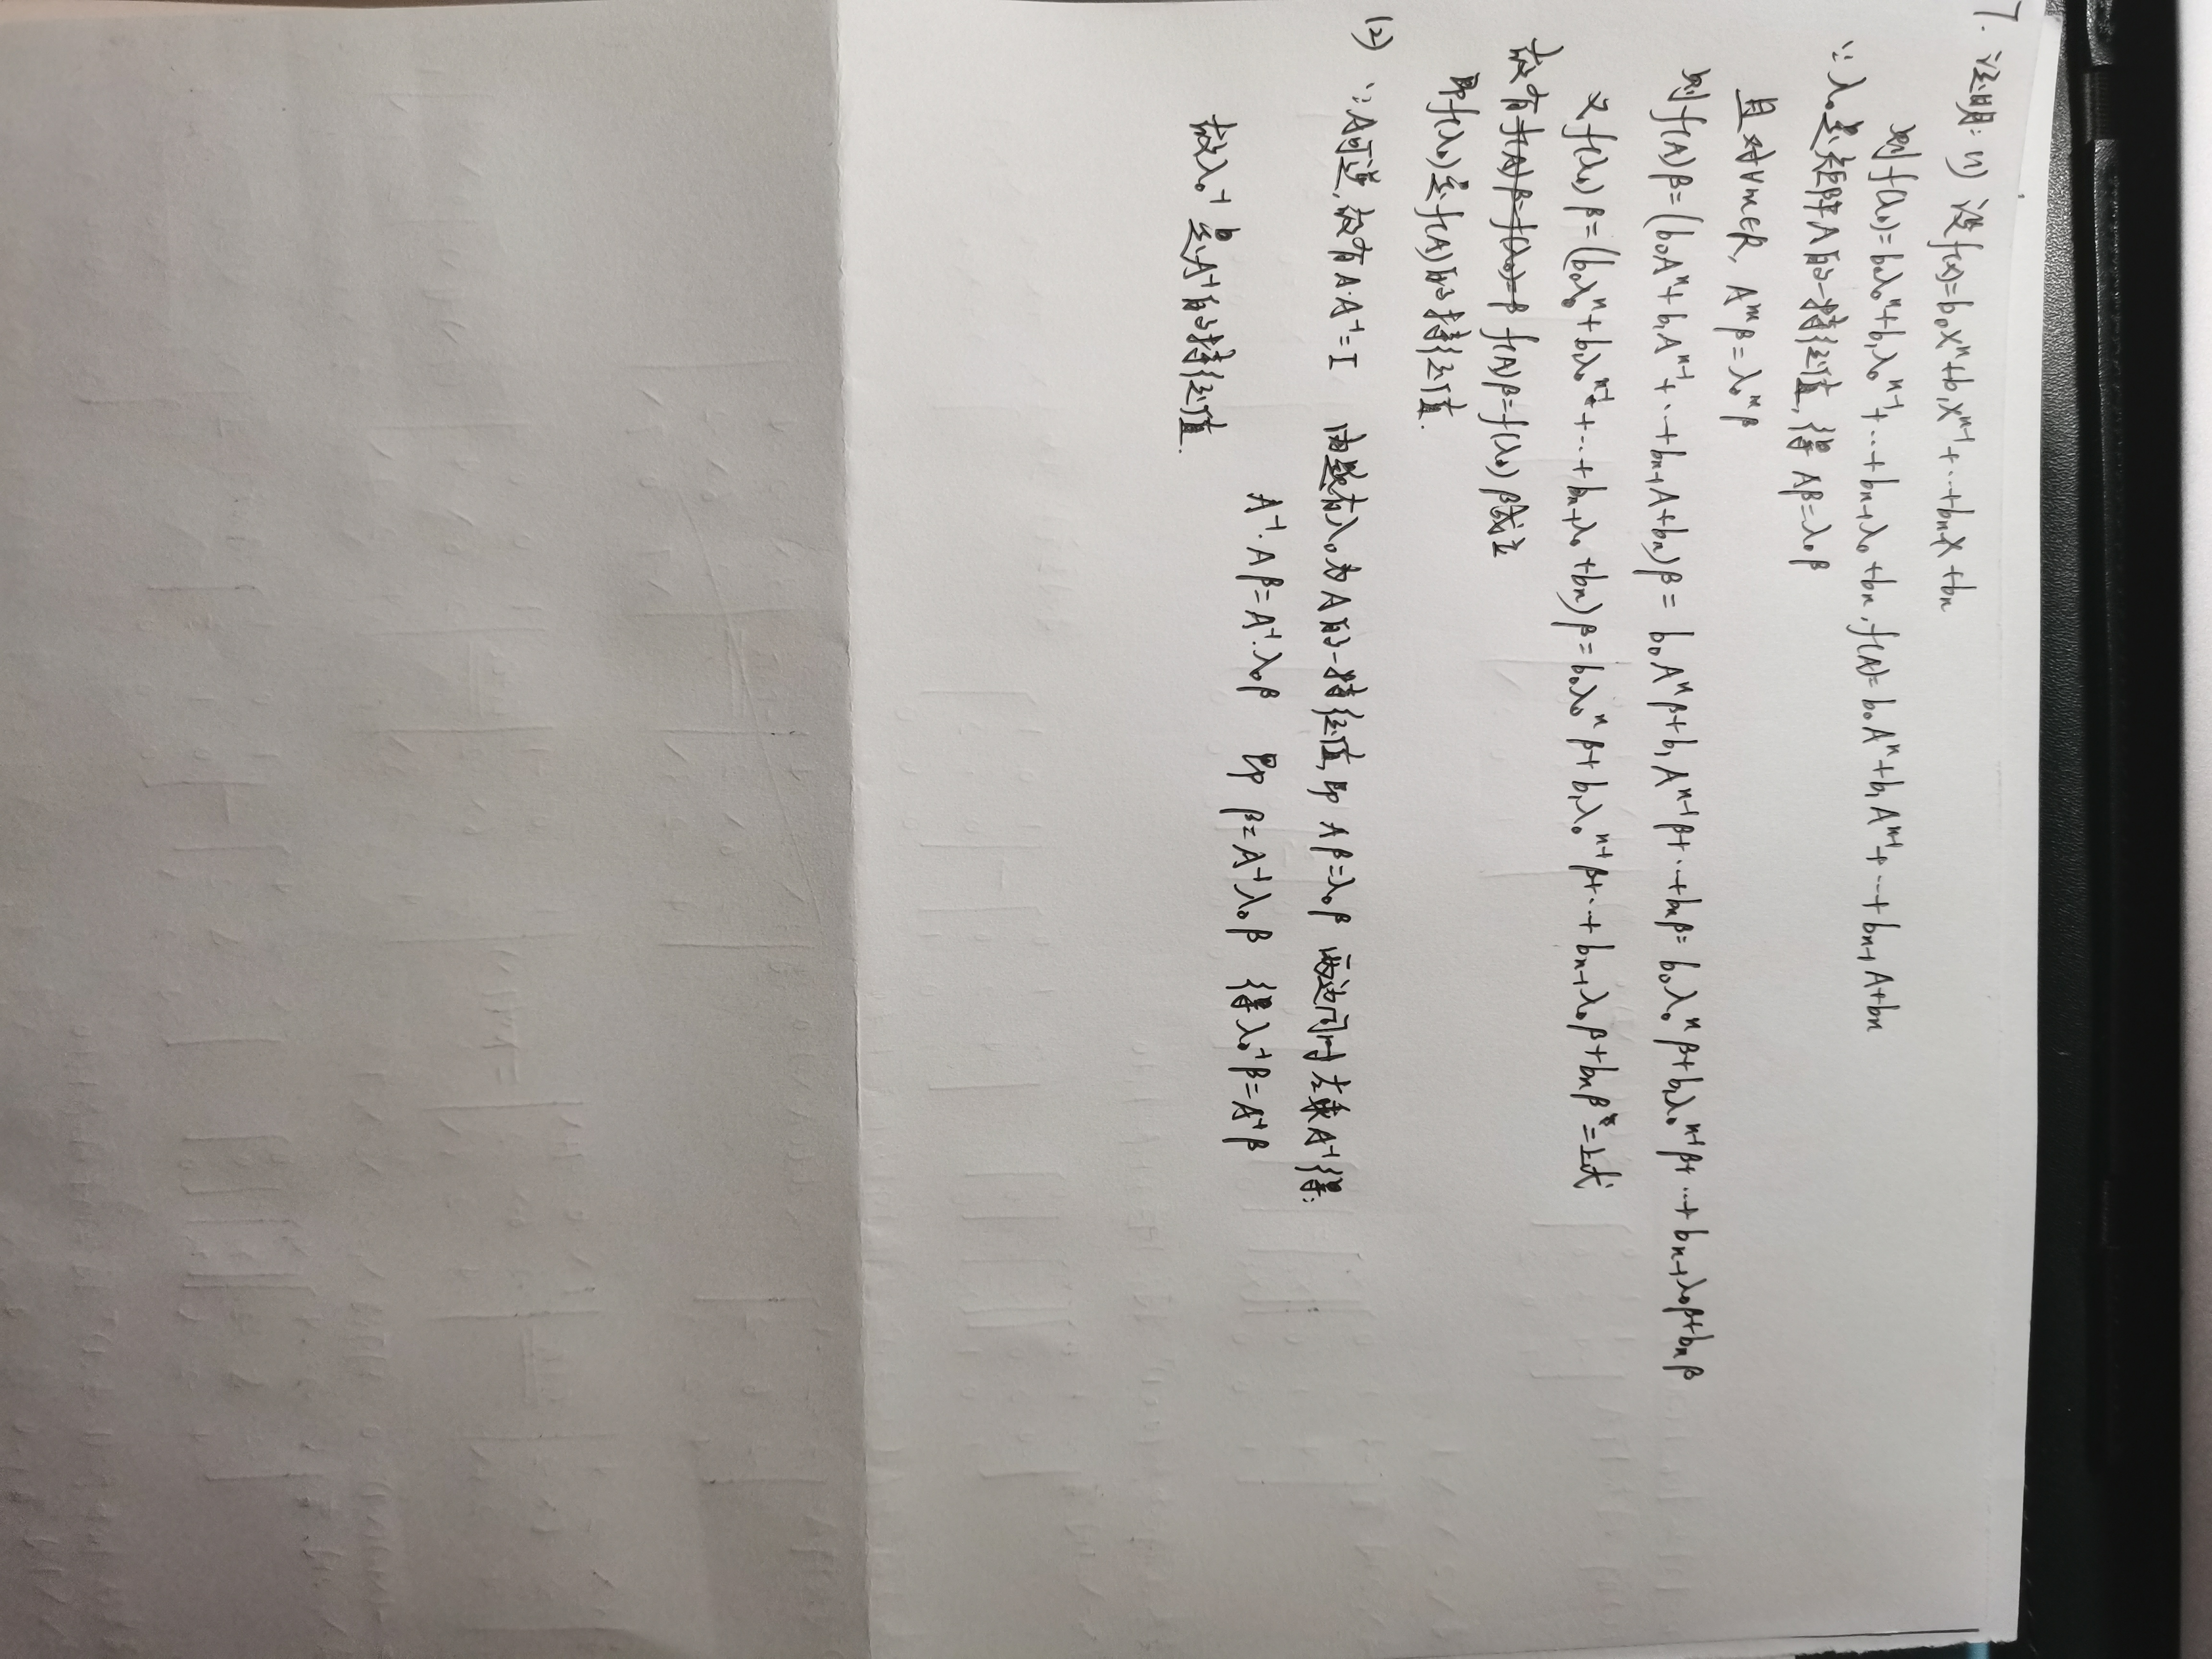 7. 证明: (1) 设f(x)=b₀xⁿ+b₁xⁿ⁻¹+…+bₙ₋₁x+bₙ
则 f(λ₀)=b₀λ₀ⁿ+b₁λ₀ⁿ⁻¹+…+bₙ₋₁λ₀+bₙ, f(A)=b₀Aⁿ+b₁Aⁿ⁻¹+…+bₙ₋₁A+bₙ
∵λ₀是矩阵A的一特征值, 得 Aβ=λ₀β
且对∀m∈R, Aᵐβ=λ₀ᵐβ
则f(A)β=(b₀Aⁿ+b₁Aⁿ⁻¹+…+bₙ₋₁A+bₙ)β=b₀Aⁿβ+b₁Aⁿ⁻¹β+…+bₙβ=b₀λ₀ⁿβ+b₁λ₀ⁿ⁻¹β+…+bₙ₋₁λ₀β+bₙβ
又f(λ₀)β=(b₀λ₀ⁿ+b₁λ₀ⁿ⁻¹+…+bₙ₋₁λ₀+bₙ)β=b₀λ₀ⁿβ+b₁λ₀ⁿ⁻¹β+…+bₙ₋₁λ₀β+bₙβ=上式
故有 f(A)β=f(λ₀)β成立
即f(λ₀)是f(A)的特征值.
(2) ∵A可逆, 故有A·A⁻¹=I 由题有λ₀为A的一特征值, 即Aβ=λ₀β 两边同时左乘A⁻¹得:
A⁻¹·Aβ=A⁻¹·λ₀β 即β=A⁻¹λ₀β 得λ₀⁻¹β=A⁻¹β
故λ₀⁻¹是A⁻¹的特征值.